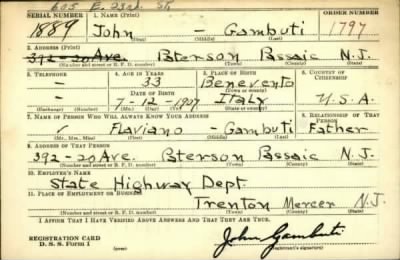 605 E. 23rd. St.
SERIAL NUMBER 1. NAME (Print) ORDER NUMBER
1889 John - Gambuti 1797
(First) (Middle) (Last)
2. ADDRESS (Print)
392-20 Ave. Pterson Passaic N.J.
(Number and street or R. F. D. number) (Town) (County) (State)
3. TELEPHONE 4. AGE IN YEARS 5. PLACE OF BIRTH 6. COUNTRY OF CITIZENSHIP
- 33 Benevento
DATE OF BIRTH (Town or county)
- 7-12-1907 Italy U.S.A.
(Exchange) (Number) (Mo.) (Day) (Yr.) (State or country)
7. NAME OF PERSON WHO WILL ALWAYS KNOW YOUR ADDRESS 8. RELATIONSHIP OF THAT PERSON
Flaviano - Gambuti Father
(Mr., Mrs., Miss) (First) (Middle) (Last)
9. ADDRESS OF THAT PERSON
392-20 Ave. Pterson Passaic N.J.
(Number and street or R. F. D. number) (Town) (County) (State)
10. EMPLOYER'S NAME
State Highway Dept.
11. PLACE OF EMPLOYMENT OR BUSINESS
Trenton Mercer N.J.
(Number and street or R. F. D. number) (Town) (County) (State)
I AFFIRM THAT I HAVE VERIFIED ABOVE ANSWERS AND THAT THEY ARE TRUE.
REGISTRATION CARD
D. S. S. Form 1
John Gambuti
(Registrant's signature)